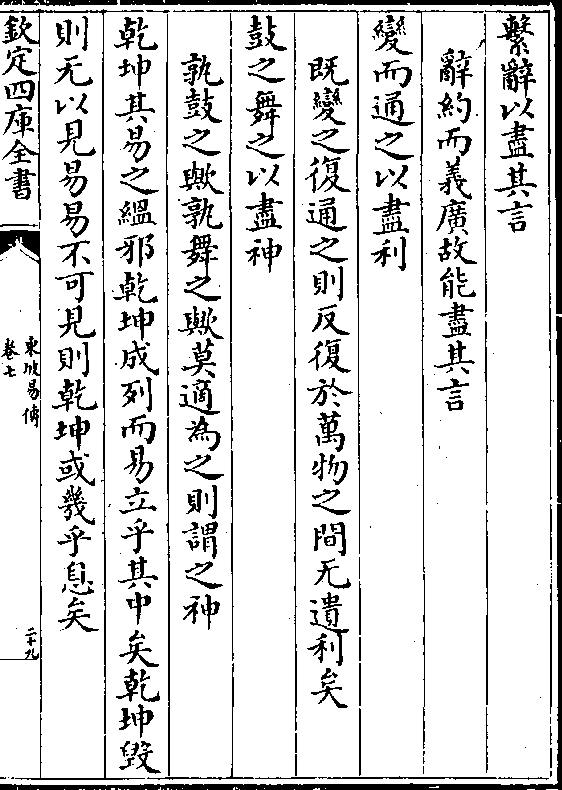 繫辭以盡其言
辭約而義廣故能盡其言
變而通之以盡利
既變之復通之則反復於萬物之間无遺利矣
鼓之舞之以盡神
孰鼓之歟孰舞之歟莫適為之則謂之神
乾坤其易之緼邪乾坤成列而易立乎其中矣乾坤毀
則无以見易易不可見則乾坤或幾乎息矣
欽定四庫全書
東坡易傳
卷七
二十九